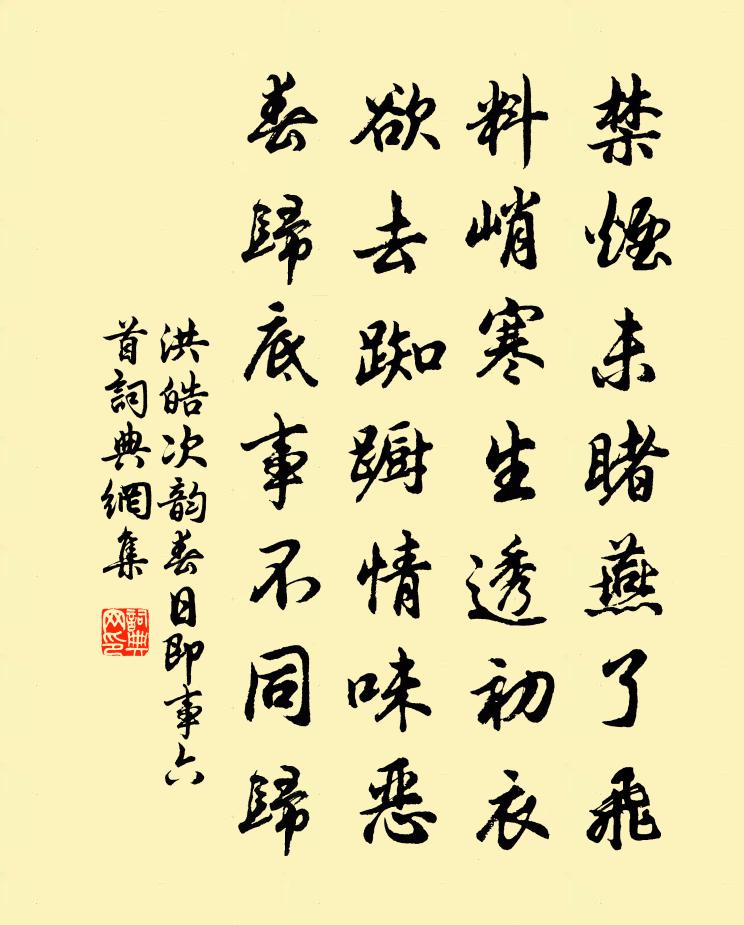 禁煙未睹燕了飛
料峭寒生透初衣
欲去踟躕情味惡
春歸底事不同歸
洪皓次韵春日即事六
首詞典網集
詞典
网印